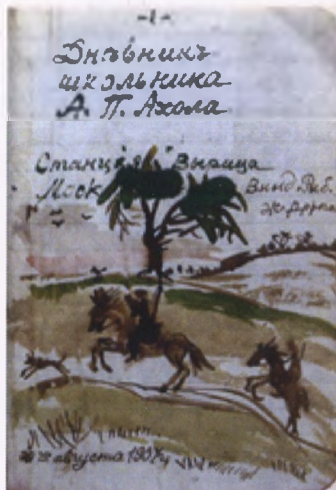 -1-
Дневникъ
школьника
А. П. Ахола
Станція Вырица
Моск
Винд Рыб
ж. дороги
22 августа 1907 г